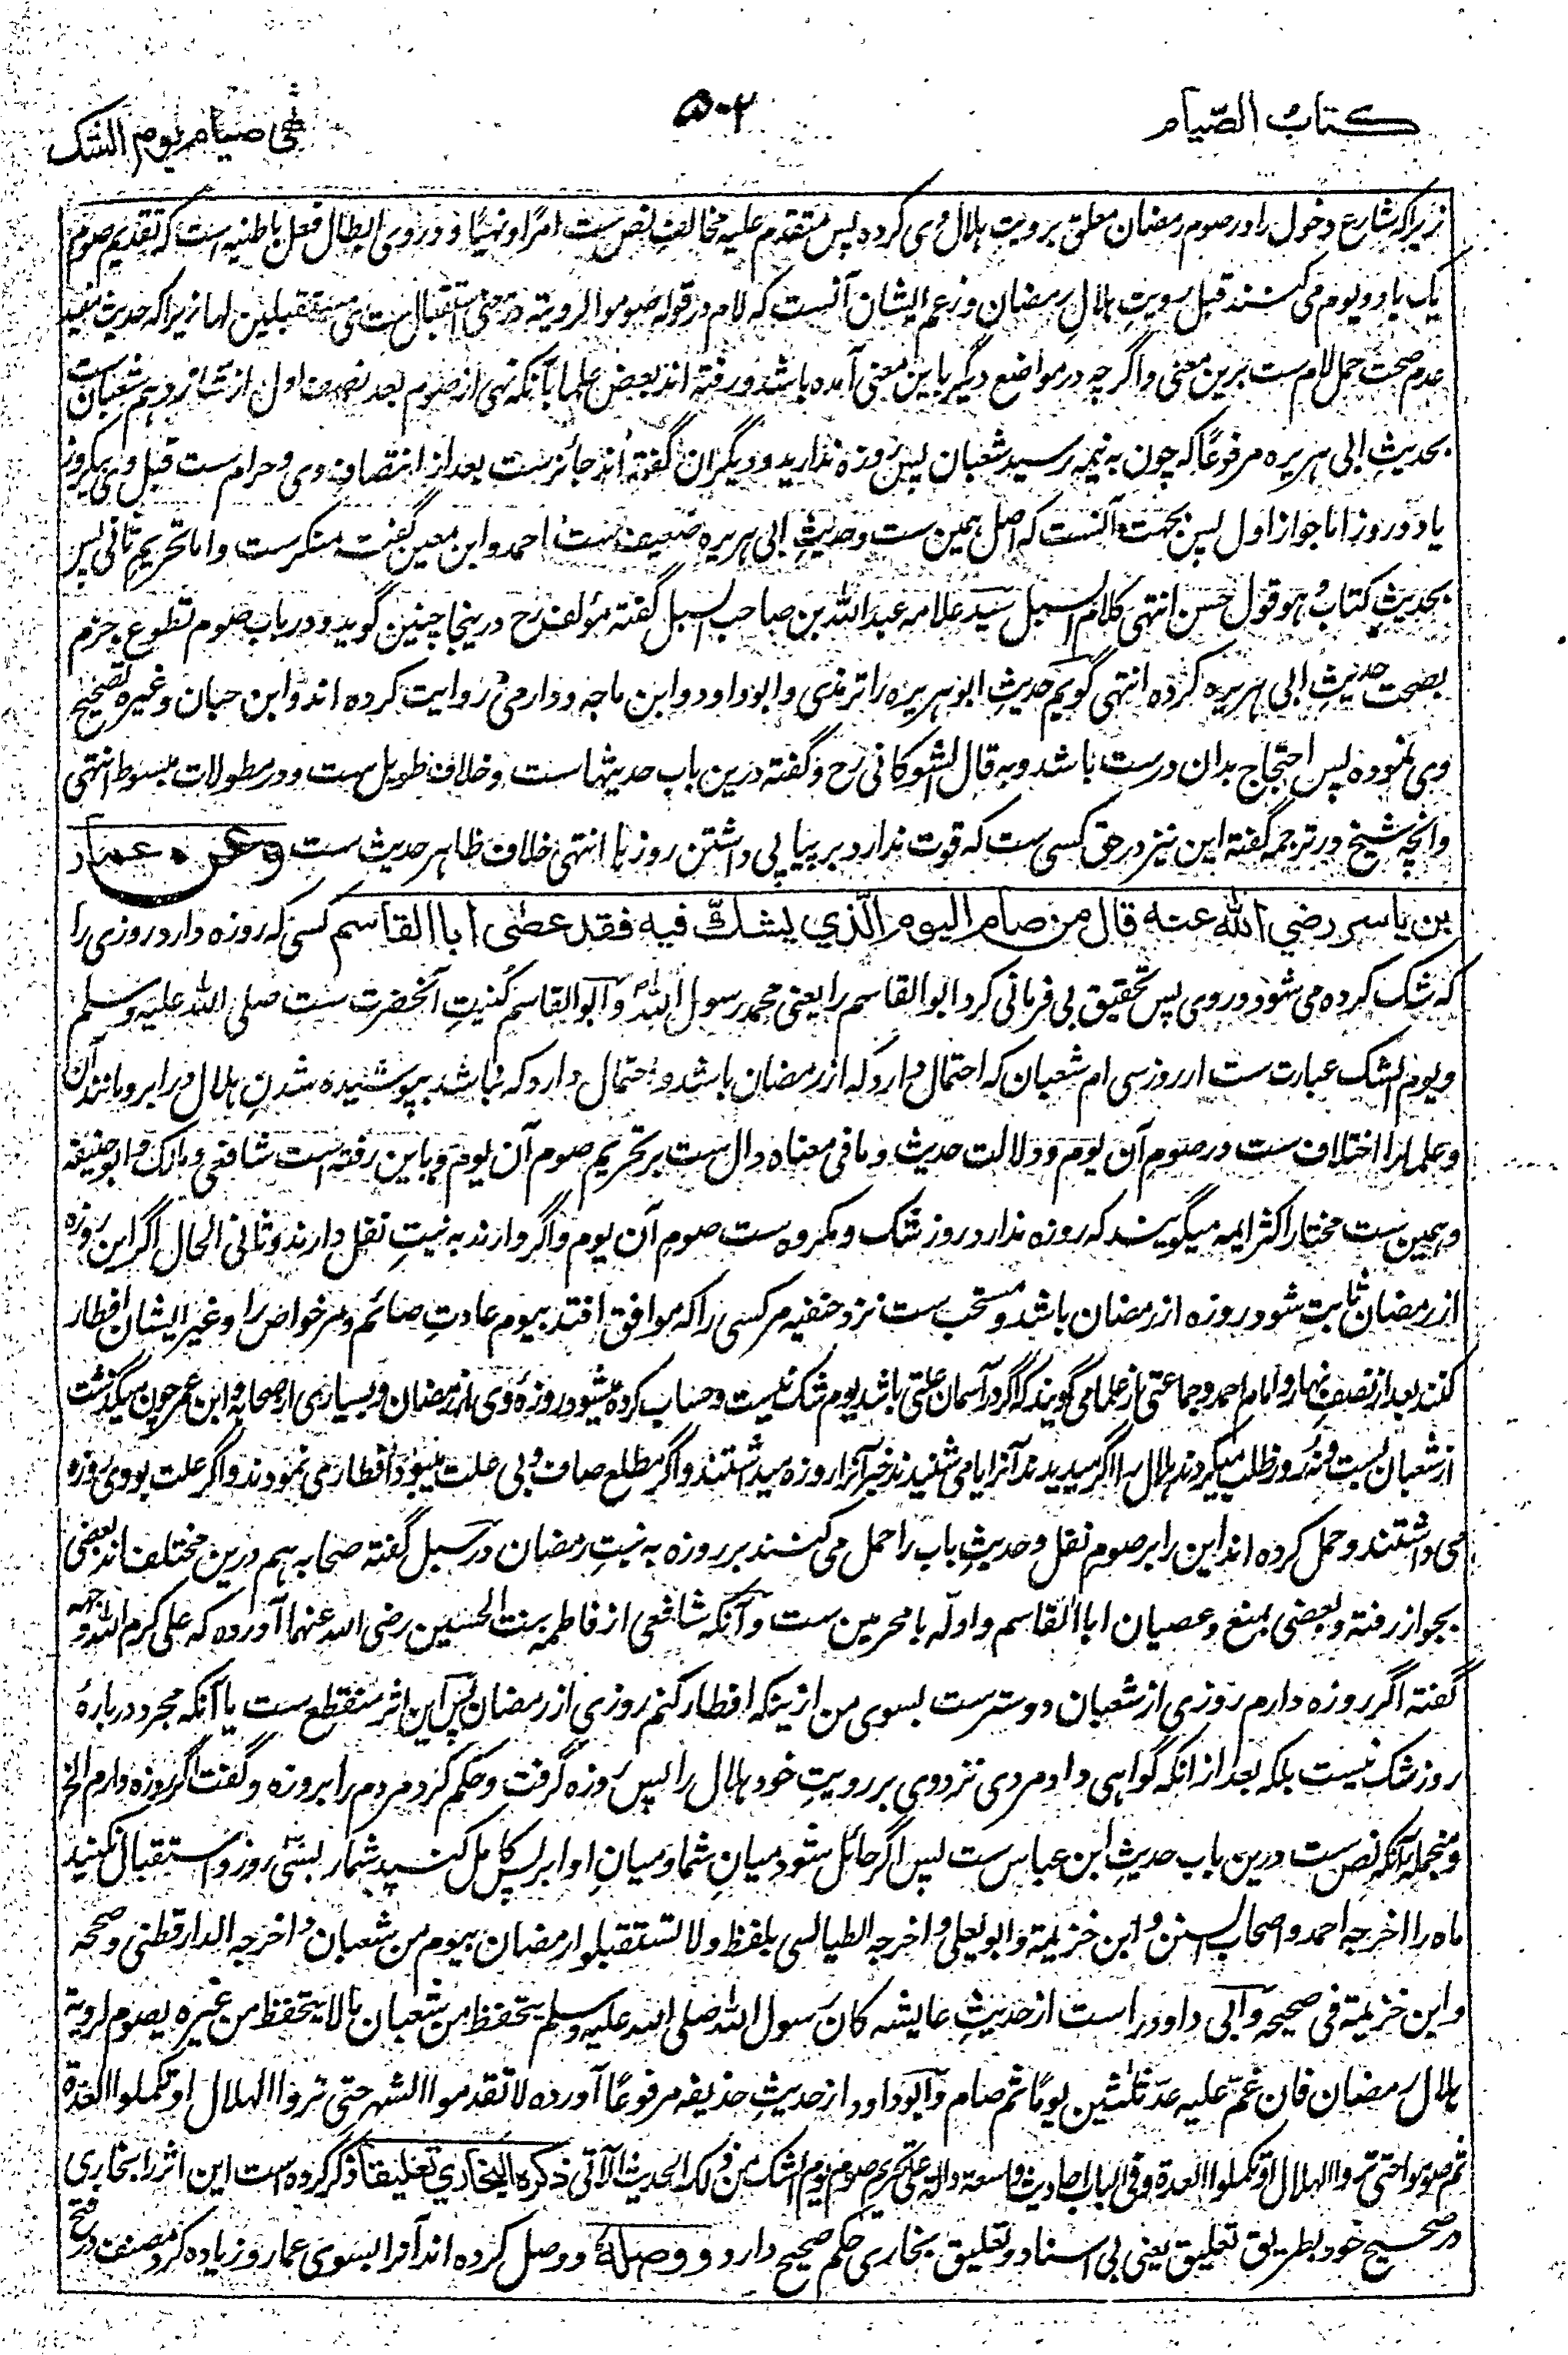 كتاب الصّيام
۵۰۲
في صيام يوم الشك
زیراکه شارع دخول را در صوم رمضان معلق برویت ہلال وی کرده پس متقدم علیہ مخالف نص ست امرًا و نہیًا و در وی ابطال فعل باطنیہ است که تقدیم صوم
یک یا دو یوم می کنند قبل رویتِ ہلالِ رمضان و زعم ایشان آنست که لام در قوله صوموا لرویته در معنی استقبال ست ای مستقبلین لها زیراکه حدیث مفید
عدم صحت حمل لام ست برین معنی و اگرچه در مواضع دیگر باین معنی آمده باشد و رفته اند بعض علما بآنکه نہی از صوم بعد نصف اول از شانزدہم شعبان ست
بحدیثِ ابی ہریره مرفوعًا که چون به نیمه رسید شعبان پس روزه ندارید و دیگران گفته اند جائز ست بعد از انتصاف وی و حرام ست قبل وی بیکروز
یا دو روز اما جواز اول پس بجهت آنست که اصل ہمین ست و حدیثِ ابی ہریره ضعیف ست احمد و ابن معین گفته منکر ست و اما تحریم ثانی پس
بحدیثِ کتاب و ہو قول حسن انتہی کلام السبل سید علامه عبدالله بن صاحب السبل گفته مؤلف رح درینجا چنین گوید و در باب صوم تطوع جزم
بصحت حدیثِ ابی ہریره کرده انتہی گویم حدیثِ ابو ہریره را ترمذی و ابو داود و ابن ماجه و دارمی روایت کرده اند و ابن حبان و غیره تصحیح
وی نموده پس احتجاج بدان درست باشد و به قال الشوکانی رح و گفته درین باب حدیثہا ست و خلاف طویل ست و در مطولات مبسوط انتہی
و انچه شیخ در ترجمه گفته این نیز در حق کسی ست که قوت ندارد بر پیاپی داشتن روز ہا انتہی خلاف ظاہر حدیث ست وعن عمار
بن ياسر رضي الله عنه قال من صام اليوم الّذي يشكّ فيه فقد عصى ابا القاسم کسی که روزه دارد روزی را
که شک کرده می شود در وی پس تحقیق بی فرمانی کرد ابو القاسم را یعنی محمد رسول الله و ابو القاسم کنیتِ آنحضرت ست صلی الله علیه وسلم
و یوم الشک عبارت ست از روز سی ام شعبان که احتمال دارد که از رمضان باشد و احتمال دارد که نباشد بپوشیده شدنِ ہلال در ابر و مانند آن
و علما را اختلاف ست در صوم آن یوم و دلالت حدیث و ما فی معناه دال ست بر تحریم صوم آن یوم و باین رفته است شافعی و مالک و ابو حنیفه
و ہمین ست مختار اکثر ایمه میگویند که روزه ندارد روز شک و مکروه ست صوم آن یوم و اگر دارند به نیتِ نفل دارند و ثانی الحال اگر این روزه
از رمضان ثابت شود روزه از رمضان باشد و مستحب ست نزد حنفیه مر کسی را که موافق افتد بیوم عادتِ صائم و مر خواص را و غیر ایشان افطار
کنند بعد از نصف نہار و امام احمد و جماعتی از علما می گویند که اگر در آسمان علتی باشد یوم شک نیست و حساب کرده میشود روزهٔ وی از رمضان و بسیاری از صحابه و ابن عمر چون میگذشت
از شعبان بست و نه روز طلب میکردند ہلال را اگر میدیدند آنرا یا می شنیدند خبر آنرا روزه میداشتند و اگر مطلع صاف و بی علت میبود افطار می نمودند و اگر علت بودی روزه
می داشتند و حمل کرده اند این را بر صوم نفل و حدیثِ باب را حمل می کنند بر روزه به نیتِ رمضان در سبل گفته صحابه ہم درین مختلف اند بعضی
بجواز رفته و بعضی بمنع و عصیان ابا القاسم و ادله با محرمین ست و آنکه شافعی از فاطمه بنت الحسین رضی الله عنهما آورده که علی کرم الله وجهه
گفته اگر روزه دارم روزی از شعبان دوستر ست بسوی من ازینکه افطار کنم روزی از رمضان پس این اثر منقطع ست یا آنکه مجرد دربارهٔ
روز شک نیست بلکه بعد از انکه گواہی داد مردی نزد وی بر رویتِ خود ہلال را پس روزه گرفت و حکم کرد مردم را بروزه و گفت اگر روزه دارم الخ
و منجمله آنکه نص ست درین باب حدیثِ ابن عباس ست پس اگر حائل شود میانِ شما و میانِ او ابر پس کامل کنید شمار سی روز و استقبال نکنید
ماه را اخرجه احمد و اصحاب السنن و ابن خزیمة و ابو یعلی و اخرجه الطیالسی بلفظ ولا تستقبلوا رمضان بیوم من شعبان و اخرجه الدارقطنی و صححه
و ابن خزیمة فی صحیحه و ابی داود راست از حدیثِ عایشه کان رسول الله صلی الله علیه وسلم یتحفظ من شعبان ما لا یتحفظ من غیره یصوم لرویة
ہلال رمضان فان غمّ علیه عدّ ثلثین یومًا ثم صام و ابو داود از حدیثِ حذیفه مرفوعًا آورده لا تقدموا الشهر حتی تروا الهلال او تکملوا العدة
ثم صوموا حتی تروا الهلال او تکملوا العدة و فی الباب احادیث واسعة دالة علی تحریم صوم یوم الشک من ذلک الحدیث الآتی ذكره البخاري تعليقًا ذکر کرده است این اثر را بخاری
در صحیح خود بطریق تعلیق یعنی بی اسناد و تعلیق بخاری حکم صحیح دارد ووصله و وصل کرده اند آنرا بسوی عمار و زیاده کرد مصنف در فتح